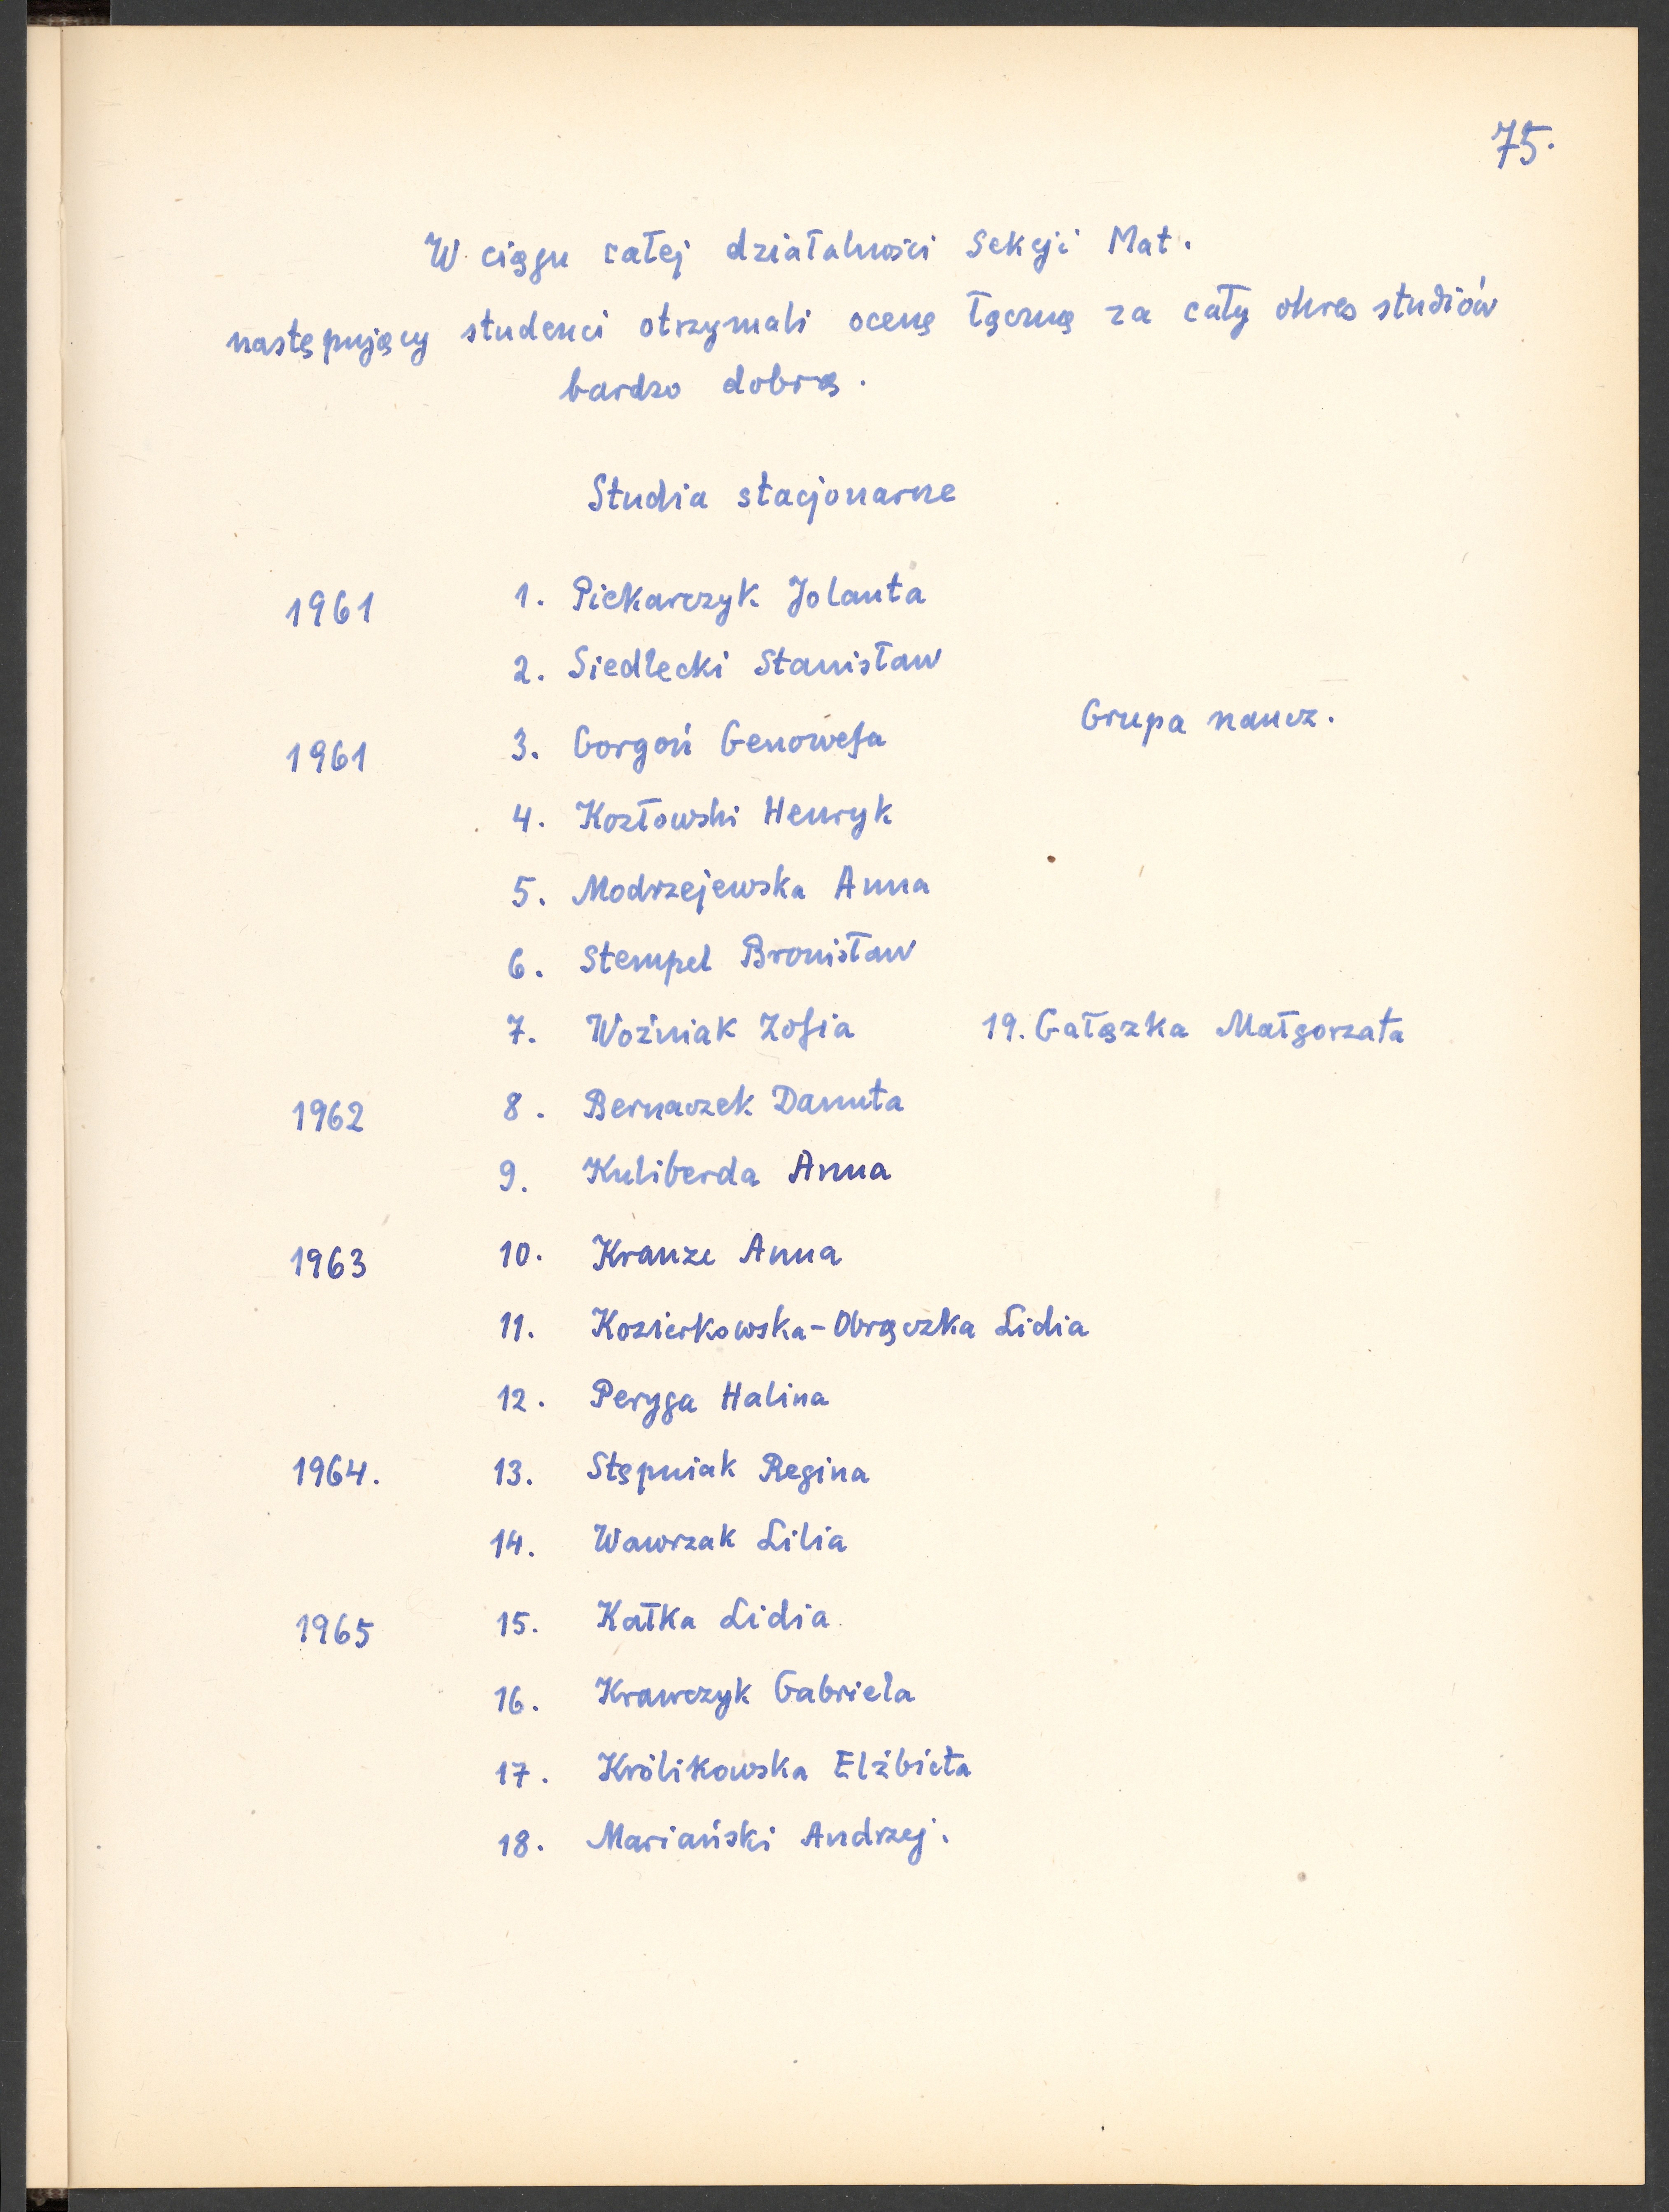 75.
W ciągu całej działalności Sekcji Mat.
następujący studenci otrzymali ocenę łączną za cały okres studiów
bardzo dobrą.
Studia stacjonarne
1961 1. Piekarczyk Jolanta
2. Siedlecki Stanisław
Grupa naucz.
1961 3. Gorgoń Genowefa
4. Kozłowski Henryk
5. Modrzejewska Anna
6. Stempel Bronisław
7. Woźniak Zofia 19. Gałązka Małgorzata
1962 8. Bernaczek Danuta
9. Kuliberda Anna
1963 10. Kranze Anna
11. Kozierkowska-Obrączka Lidia
12. Peryga Halina
1964. 13. Stępniak Regina
14. Wawrzak Lilia
1965 15. Kałka Lidia
16. Krawczyk Gabriela
17. Królikowska Elżbieta
18. Mariański Andrzej.